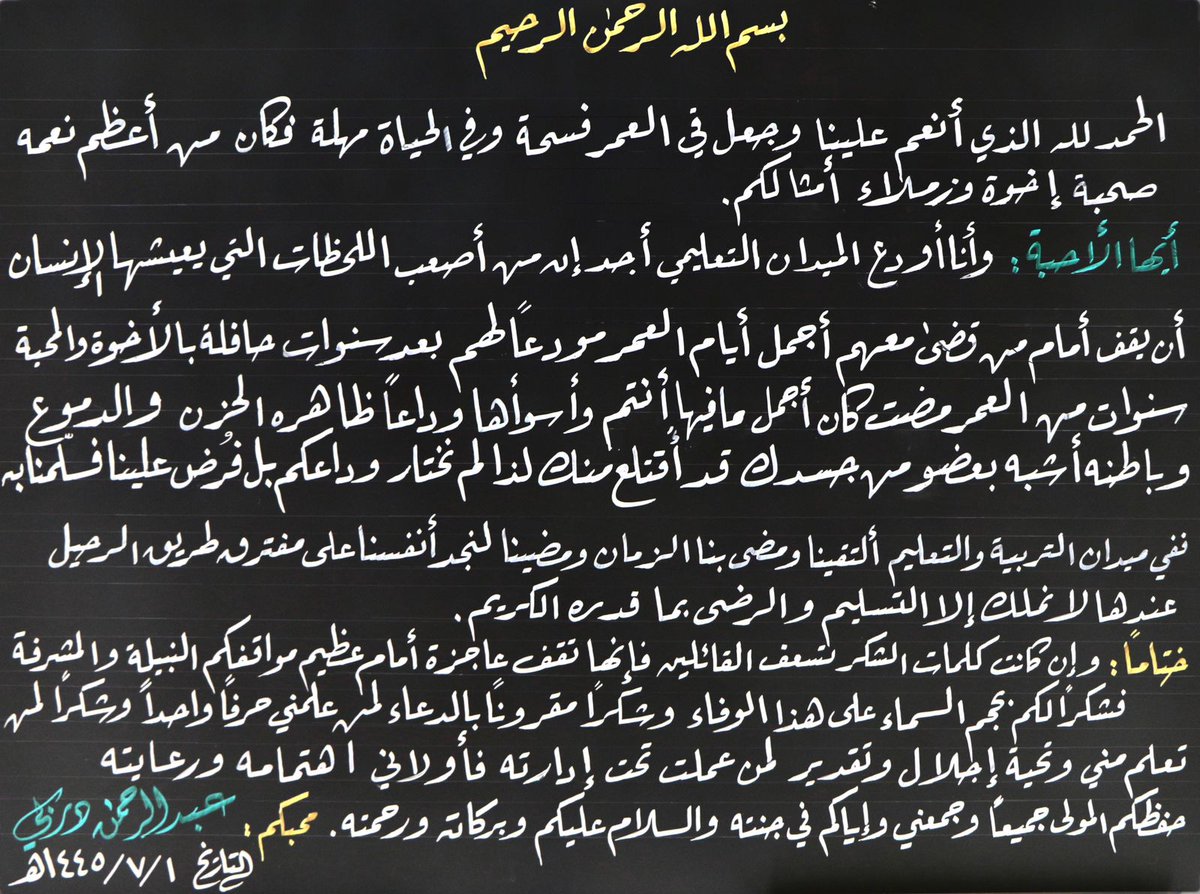 بسم الله الرحمن الرحيم
الحمد لله الذي أنعم علينا وجعل في العمر فسحة وفي الحياة مهلة فكان من أعظم نعمه
صحبة إخوة وزملاء أمثالكم.
أيها الأحبة: وأنا أودع الميدان التعليمي أجد إن من أصعب اللحظات التي يعيشها الإنسان
أن يقف أمام من قضى معهم أجمل أيام العمر مودعاً لهم بعد سنوات حافلة بالأخوة والمحبة
سنوات من العمر مضت كان أجمل مافيها أنتم وأسوأها وداعاً ظاهره الحزن والدموع
وباطنه أشبه بعضو من جسدك قد أُقتلع منك لذا لم نختار وداعكم بل فُرض علينا فسلّمنا به
ففي ميدان التربية والتعليم ألتقينا ومضى بنا الزمان ومضينا لنجد أنفسنا على مفترق طريق الرحيل
عندها لا نملك إلا التسليم والرضى بما قدره الكريم.
ختاماً: وإن كانت كلمات الشكر تسعف القائلين فإنها تقف عاجزة أمام عظيم مواقفكم النبيلة والمشرفة
فشكراً لكم بحجم السماء على هذا الوفاء وشكراً مقرونًا بالدعاء لمن علمني حرفاً واحداً وشكراً لمن
تعلم مني وتحية إجلال وتقدير لمن عملت تحت إدارته فأولاني اهتمامه ورعايته
حفظكم المولى جميعاً وجمعني وإياكم في جنته والسلام عليكم وبركاته ورحمته. محبكم: عبدالرحمن
التاريخ ١٤٤٥/٧/١هـ